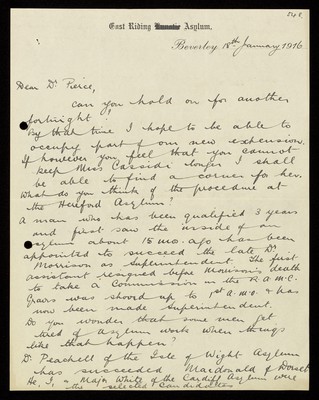 East Riding Lunatic Asylum.
Beverley 18th January 1916.
Dear Dr. Pierce,
Can you hold on for another
fortnight!
By that time I hope to be able to
occupy part of our new extension.
If however you feel that you cannot
keep Miss Cassidi longer I shall
be able to find a corner for her.
What do you think of the procedure at
the Hereford Asylum?
A man who has been qualified 3 years
and first saw the inside of an
asylum about 15 mos. ago has been
appointed to succeed the late Dr.
Morrison as Superintendent. The first
assistant resigned before Morrison's death
to take a Commission in the R.A.M.C.
was shoved up to 1st a.m.o. & has
now been made Superintendent.
Do you wonder that some men get
tired of asylum work when things
like that happen?
Dr. Peachell of the Isle of Wight Asylum
has succeeded Macdonald of Dorset
He, I, & Major White of the Cardiff Asylum were
the selected candidates